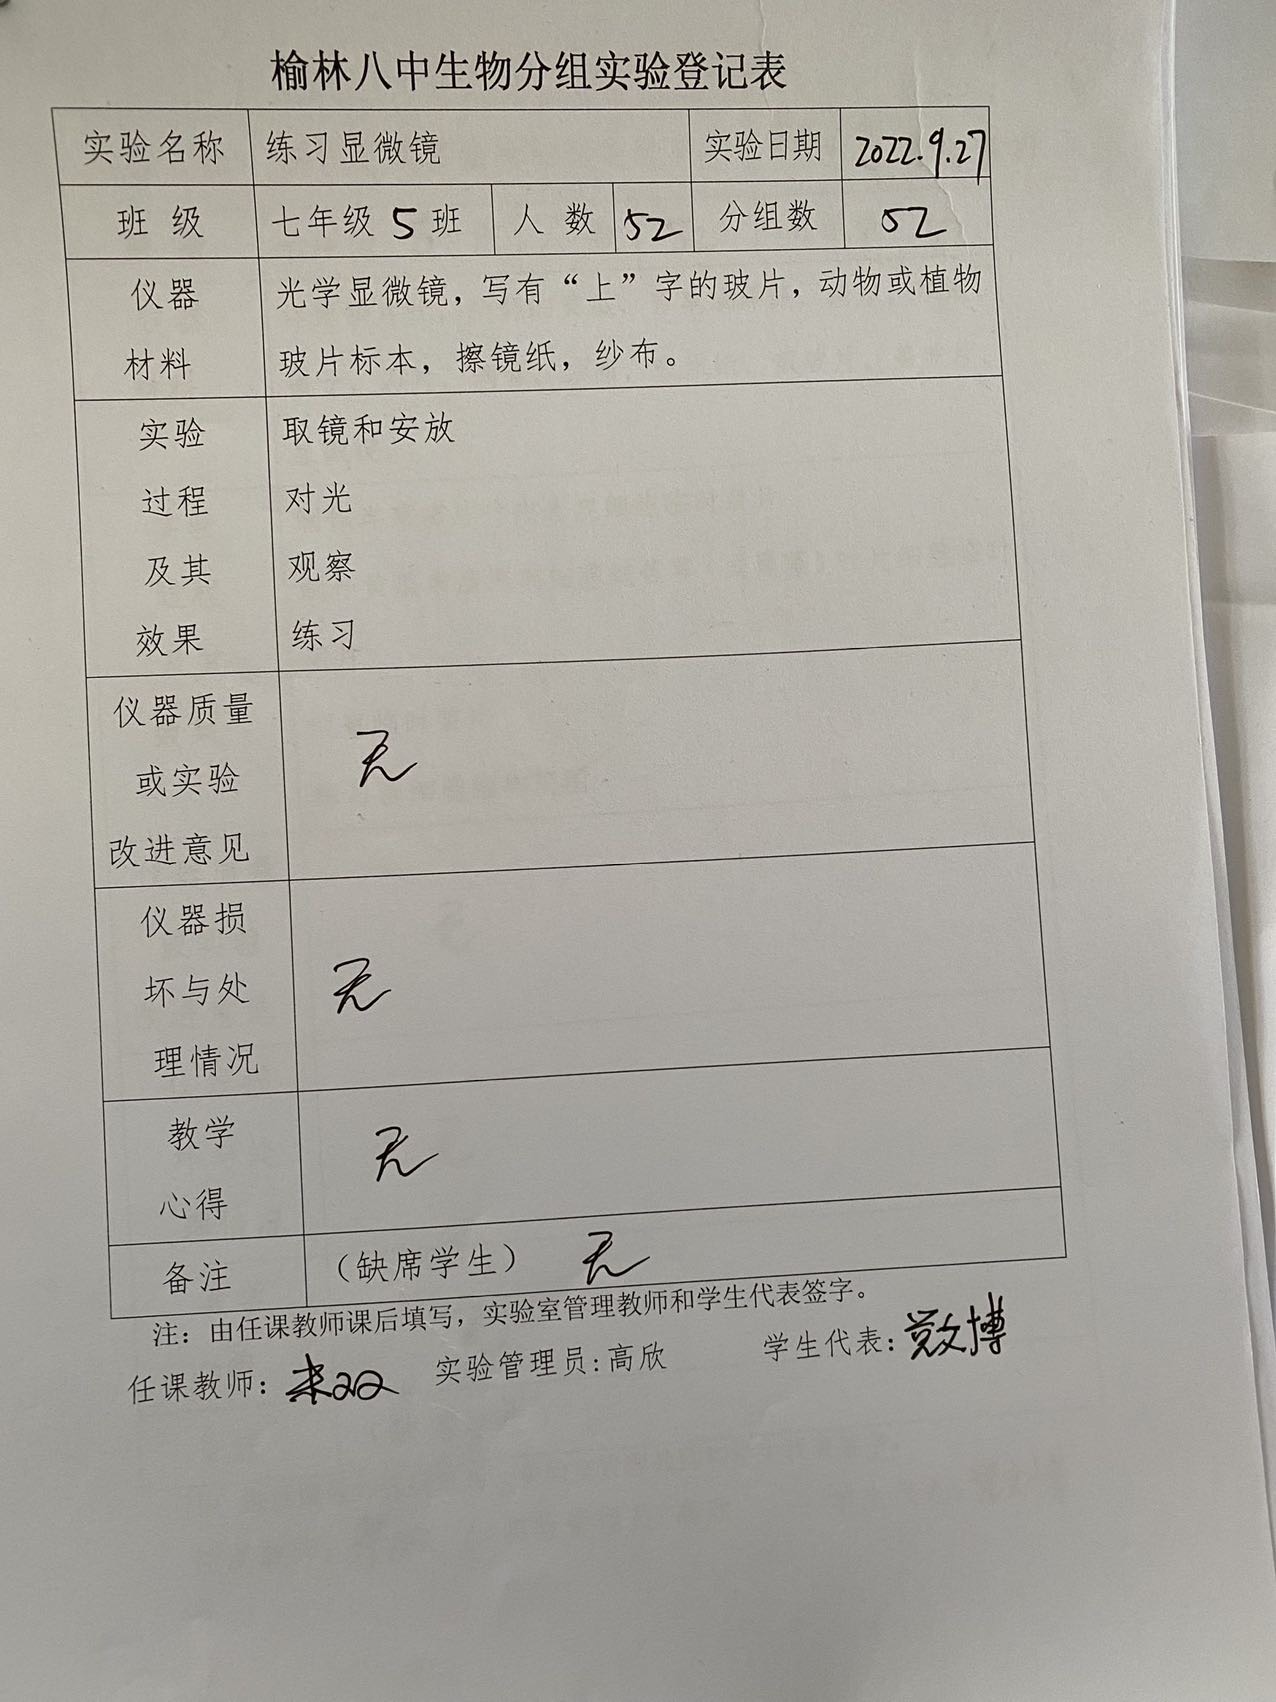 榆林八中生物分组实验登记表
实验名称 练习显微镜 实验日期 2022.9.27
班 级 七年级 5 班 人 数 52 分组数 52
仪器 光学显微镜，写有“上”字的玻片，动物或植物
材料 玻片标本，擦镜纸，纱布。
实验 取镜和安放
过程 对光
及其 观察
效果 练习
仪器质量
或实验 无
改进意见
仪器损
坏与处 无
理情况
教学 无
心得
备注 （缺席学生） 无
注：由任课教师课后填写，实验室管理教师和学生代表签字。
任课教师： 实验管理员：高欣 学生代表：